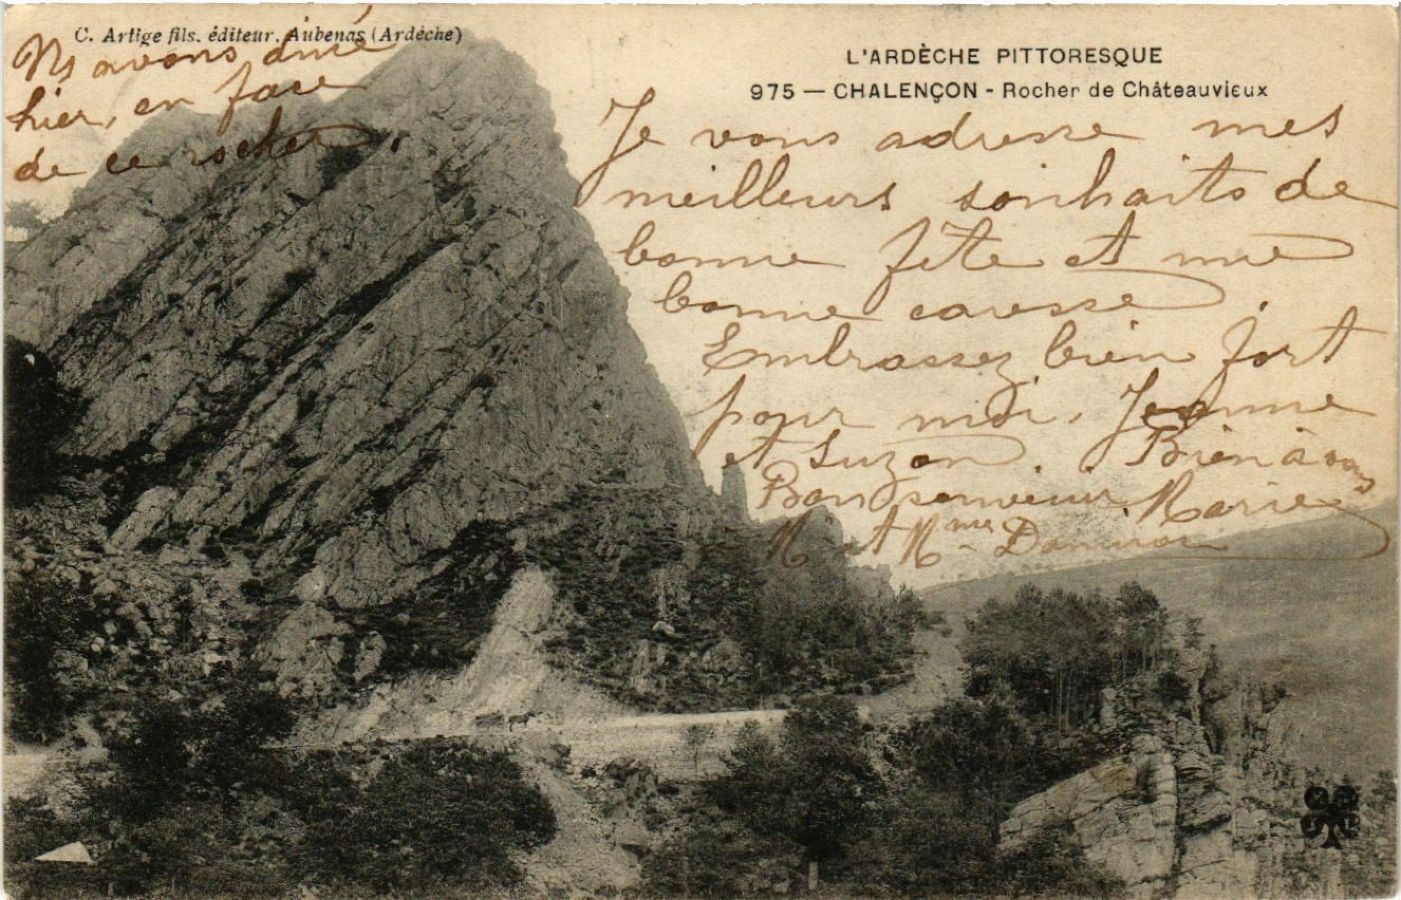 C. Artige fils. éditeur. Aubenas (Ardèche)
Ns avons diné
hier, en face
de ce rocher.
L'ARDÈCHE PITTORESQUE
975 — CHALENÇON - Rocher de Châteauvieux
Je vous adresse mes
meilleurs souhaits de
bonne fête et une
bonne caresse
Embrassez bien fort
pour moi, Jeanne
et Suzon. Bien à vous
Bon souvenir Marie
M et Mme